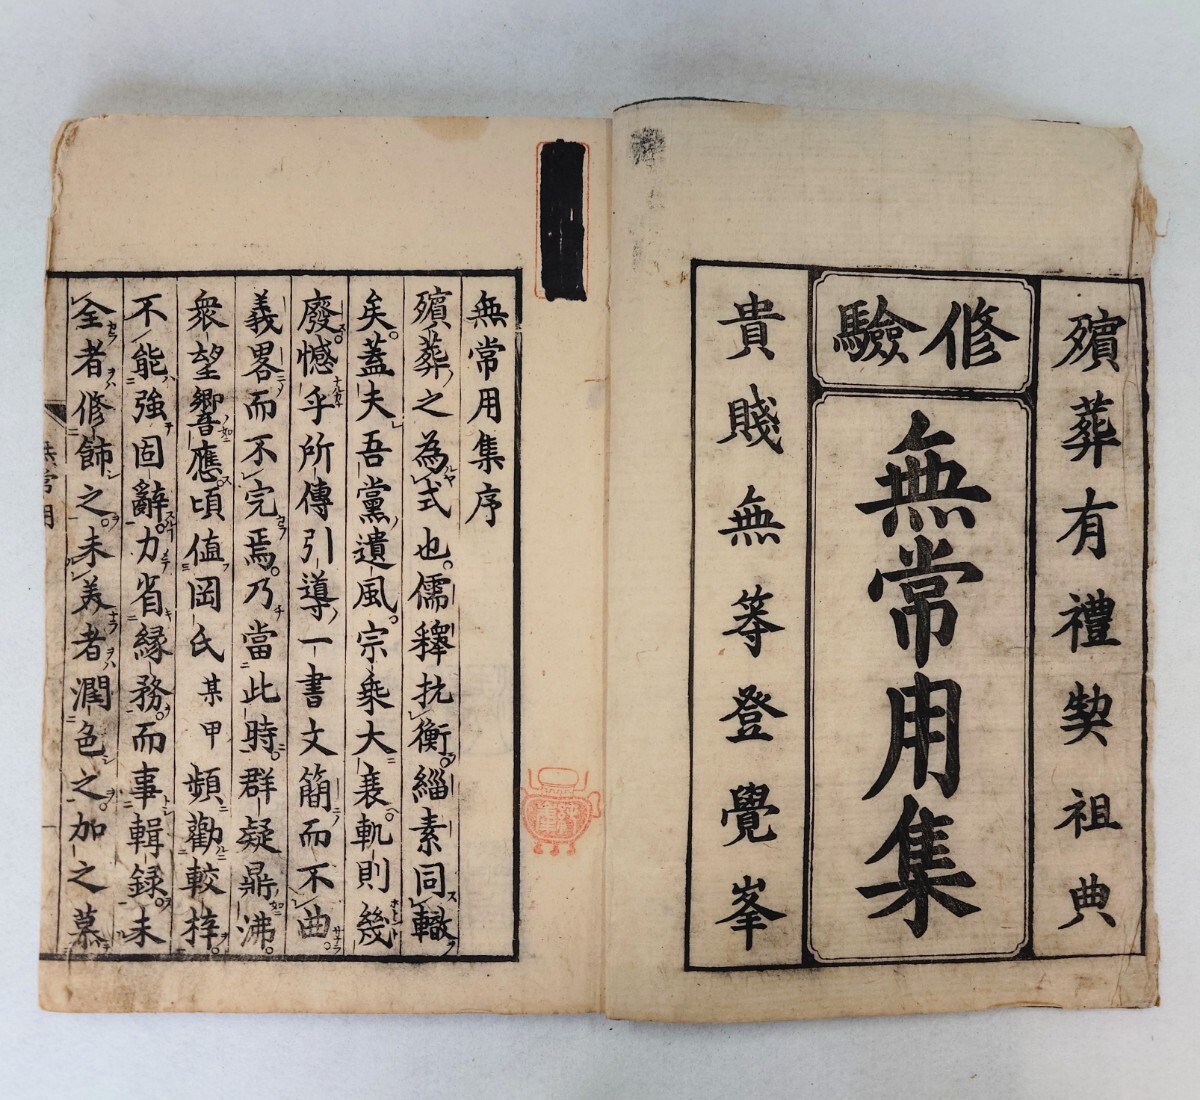 殯葬有禮契祖典
修驗
無常用集
貴賤無等登覺峯
無常用集序
殯葬之為式也儒釋抗衡緇素同轍
矣蓋夫吾黨遺風宗乘大衰軌則幾
廢憾乎所傳引導一書文簡而不曲
義畧而不完焉乃當此時群疑鼎沸
衆望響應頃值岡氏某甲頻勸較梓
不能強固辭力省緣務而事輯録未
全者修飾之未美者潤色之加之慕